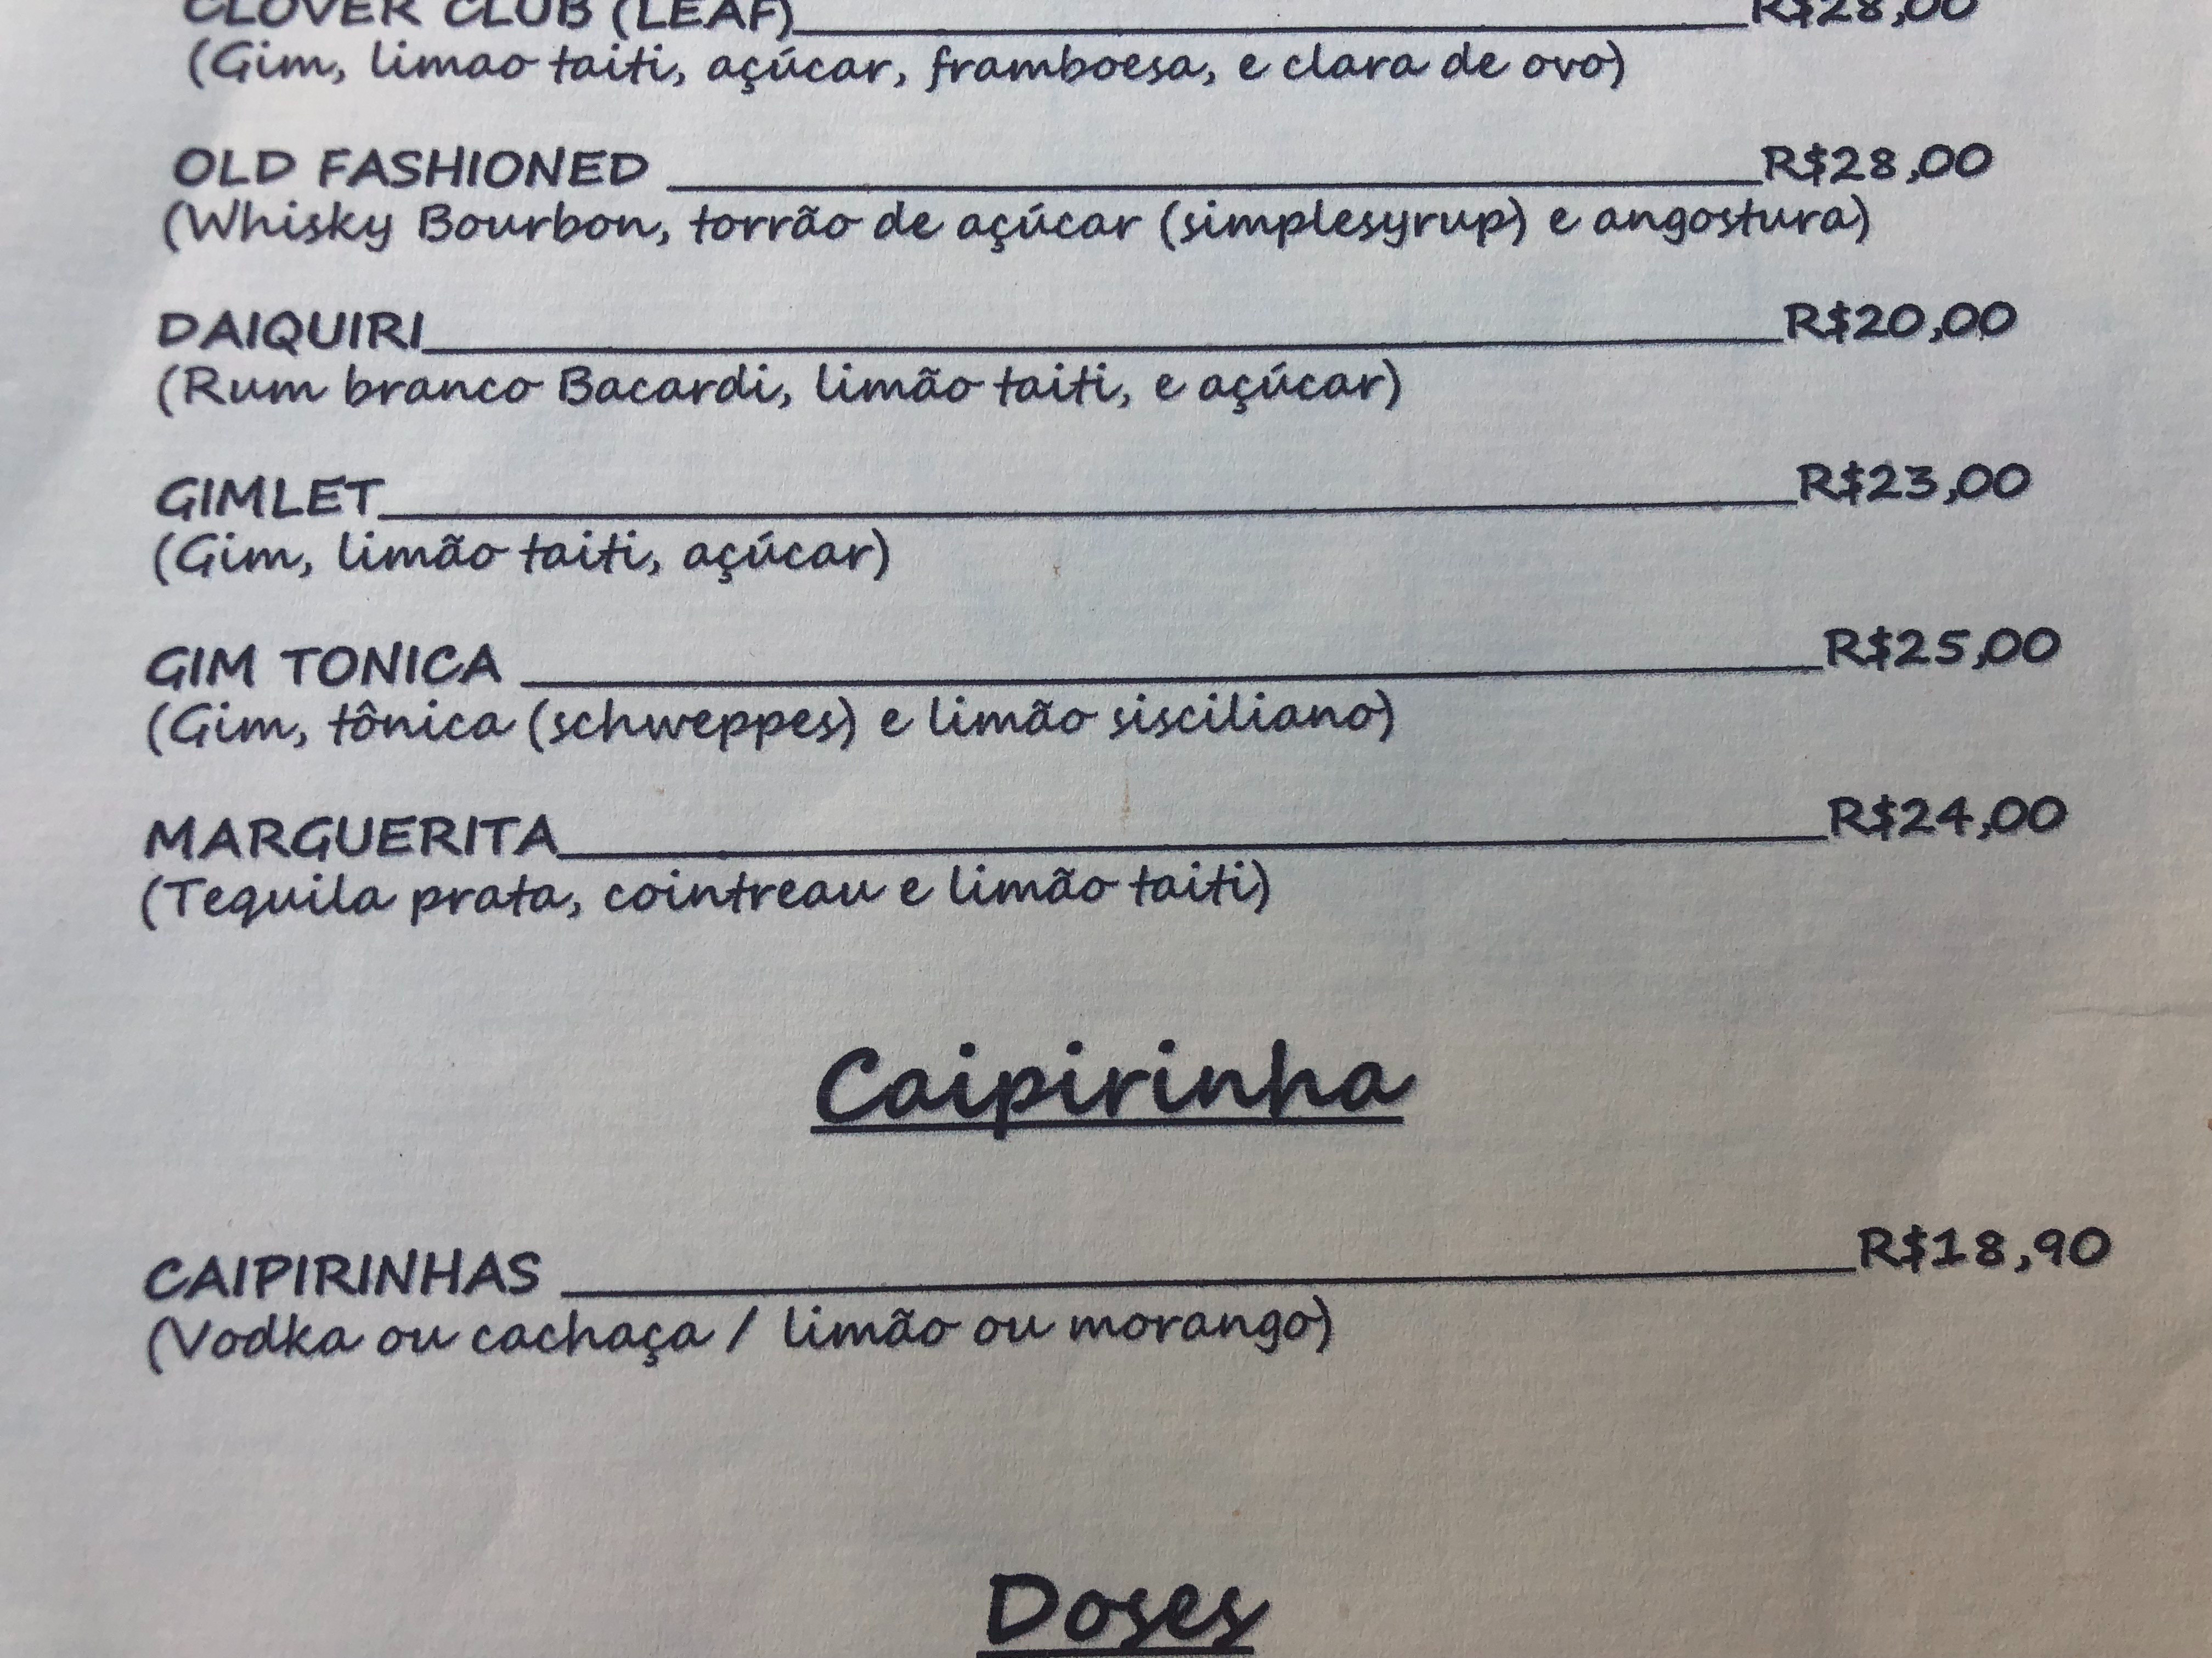 CLOVER CLUB (LEAF)____R$28,00
(Gim, limao taiti, açúcar, framboesa, e clara de ovo)
OLD FASHIONED ____R$28,00
(Whisky Bourbon, torrão de açúcar (simplesyrup) e angostura)
DAIQUIRI____R$20,00
(Rum branco Bacardi, limão taiti, e açúcar)
GIMLET____R$23,00
(Gim, limão taiti, açúcar)
GIM TONICA ____R$25,00
(Gim, tônica (schweppes) e limão sisciliano)
MARGUERITA____R$24,00
(Tequila prata, cointreau e limão taiti)
Caipirinha
CAIPIRINHAS ____R$18,90
(Vodka ou cachaça / limão ou morango)
Doses